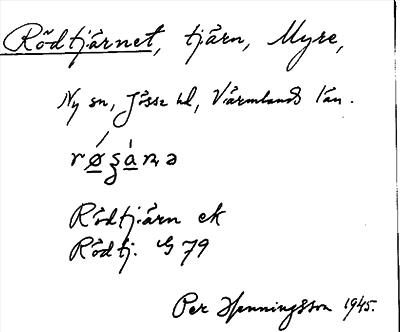 Rödtjärnet, tjärn, Myre,
Ny sn, Jösse hd, Värmlands län.
Rödtjärn ek
Rödtj. G 79
Per Henningsson 1945.